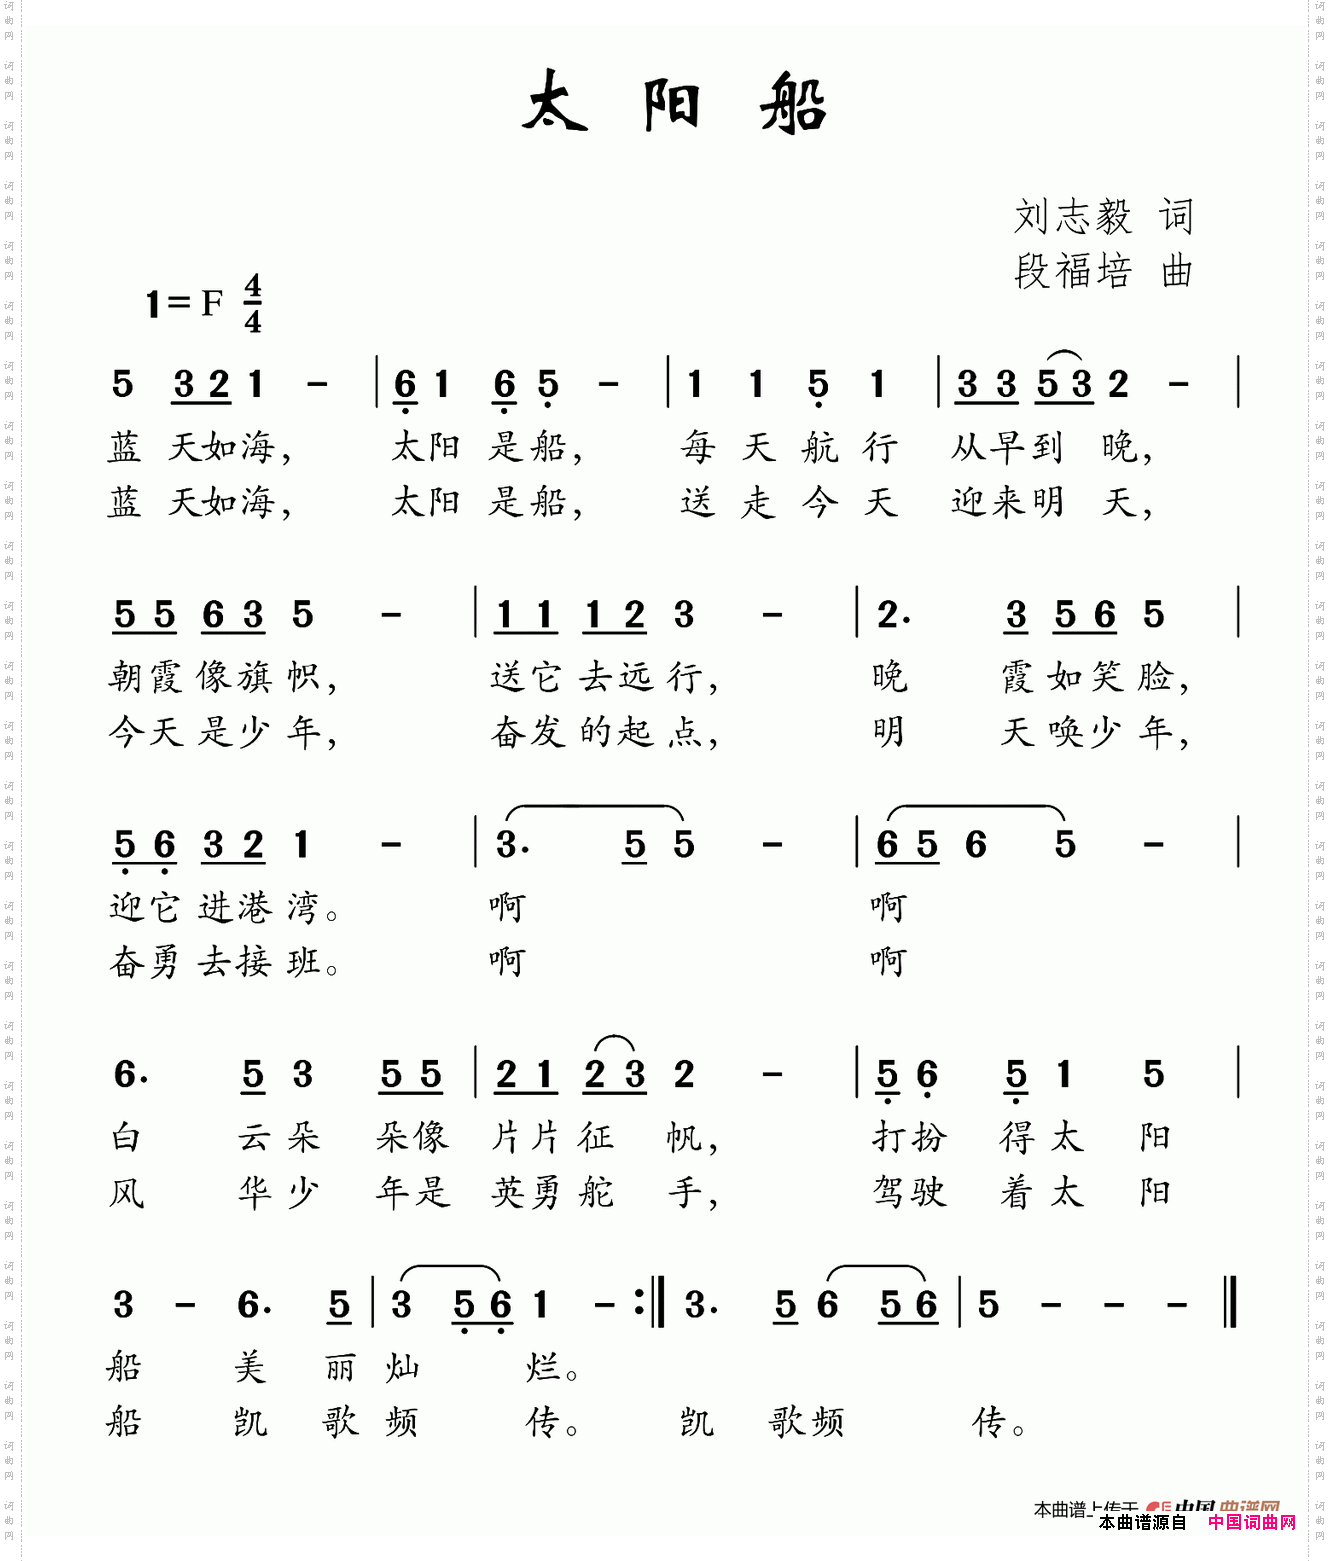 太 阳 船
刘志毅 词
段福培 曲
1= F 4/4
5 3 2 1 - | 6 1 6 5 - | 1 1 5 1 | 3 3 5 3 2 - |
蓝 天如海， 太阳 是船， 每 天 航 行 从早到 晚，
蓝 天如海， 太阳 是船， 送 走 今 天 迎来明 天，
5 5 6 3 5 - | 1 1 1 2 3 - | 2. 3 5 6 5 |
朝霞 像旗 帜， 送它 去远 行， 晚 霞 如笑 脸，
今天 是少 年， 奋发 的起 点， 明 天 唤少 年，
5 6 3 2 1 - | 3. 5 5 - | 6 5 6 5 - |
迎它 进港 湾。 啊 啊
奋勇 去接 班。 啊 啊
6. 5 3 5 5 | 2 1 2 3 2 - | 5 6 5 1 5 |
白 云 朵 朵像 片片 征 帆， 打扮 得 太 阳
风 华 少 年是 英勇 舵 手， 驾驶 着 太 阳
3 - 6. 5 | 3 5 6 1 - :‖ 3. 5 6 5 6 | 5 - - - ‖
船 美 丽 灿 烂。
船 凯 歌 频 传。 凯 歌频 传。
本曲谱上传于 中国曲谱网
本曲谱源自 中国词曲网
词曲网